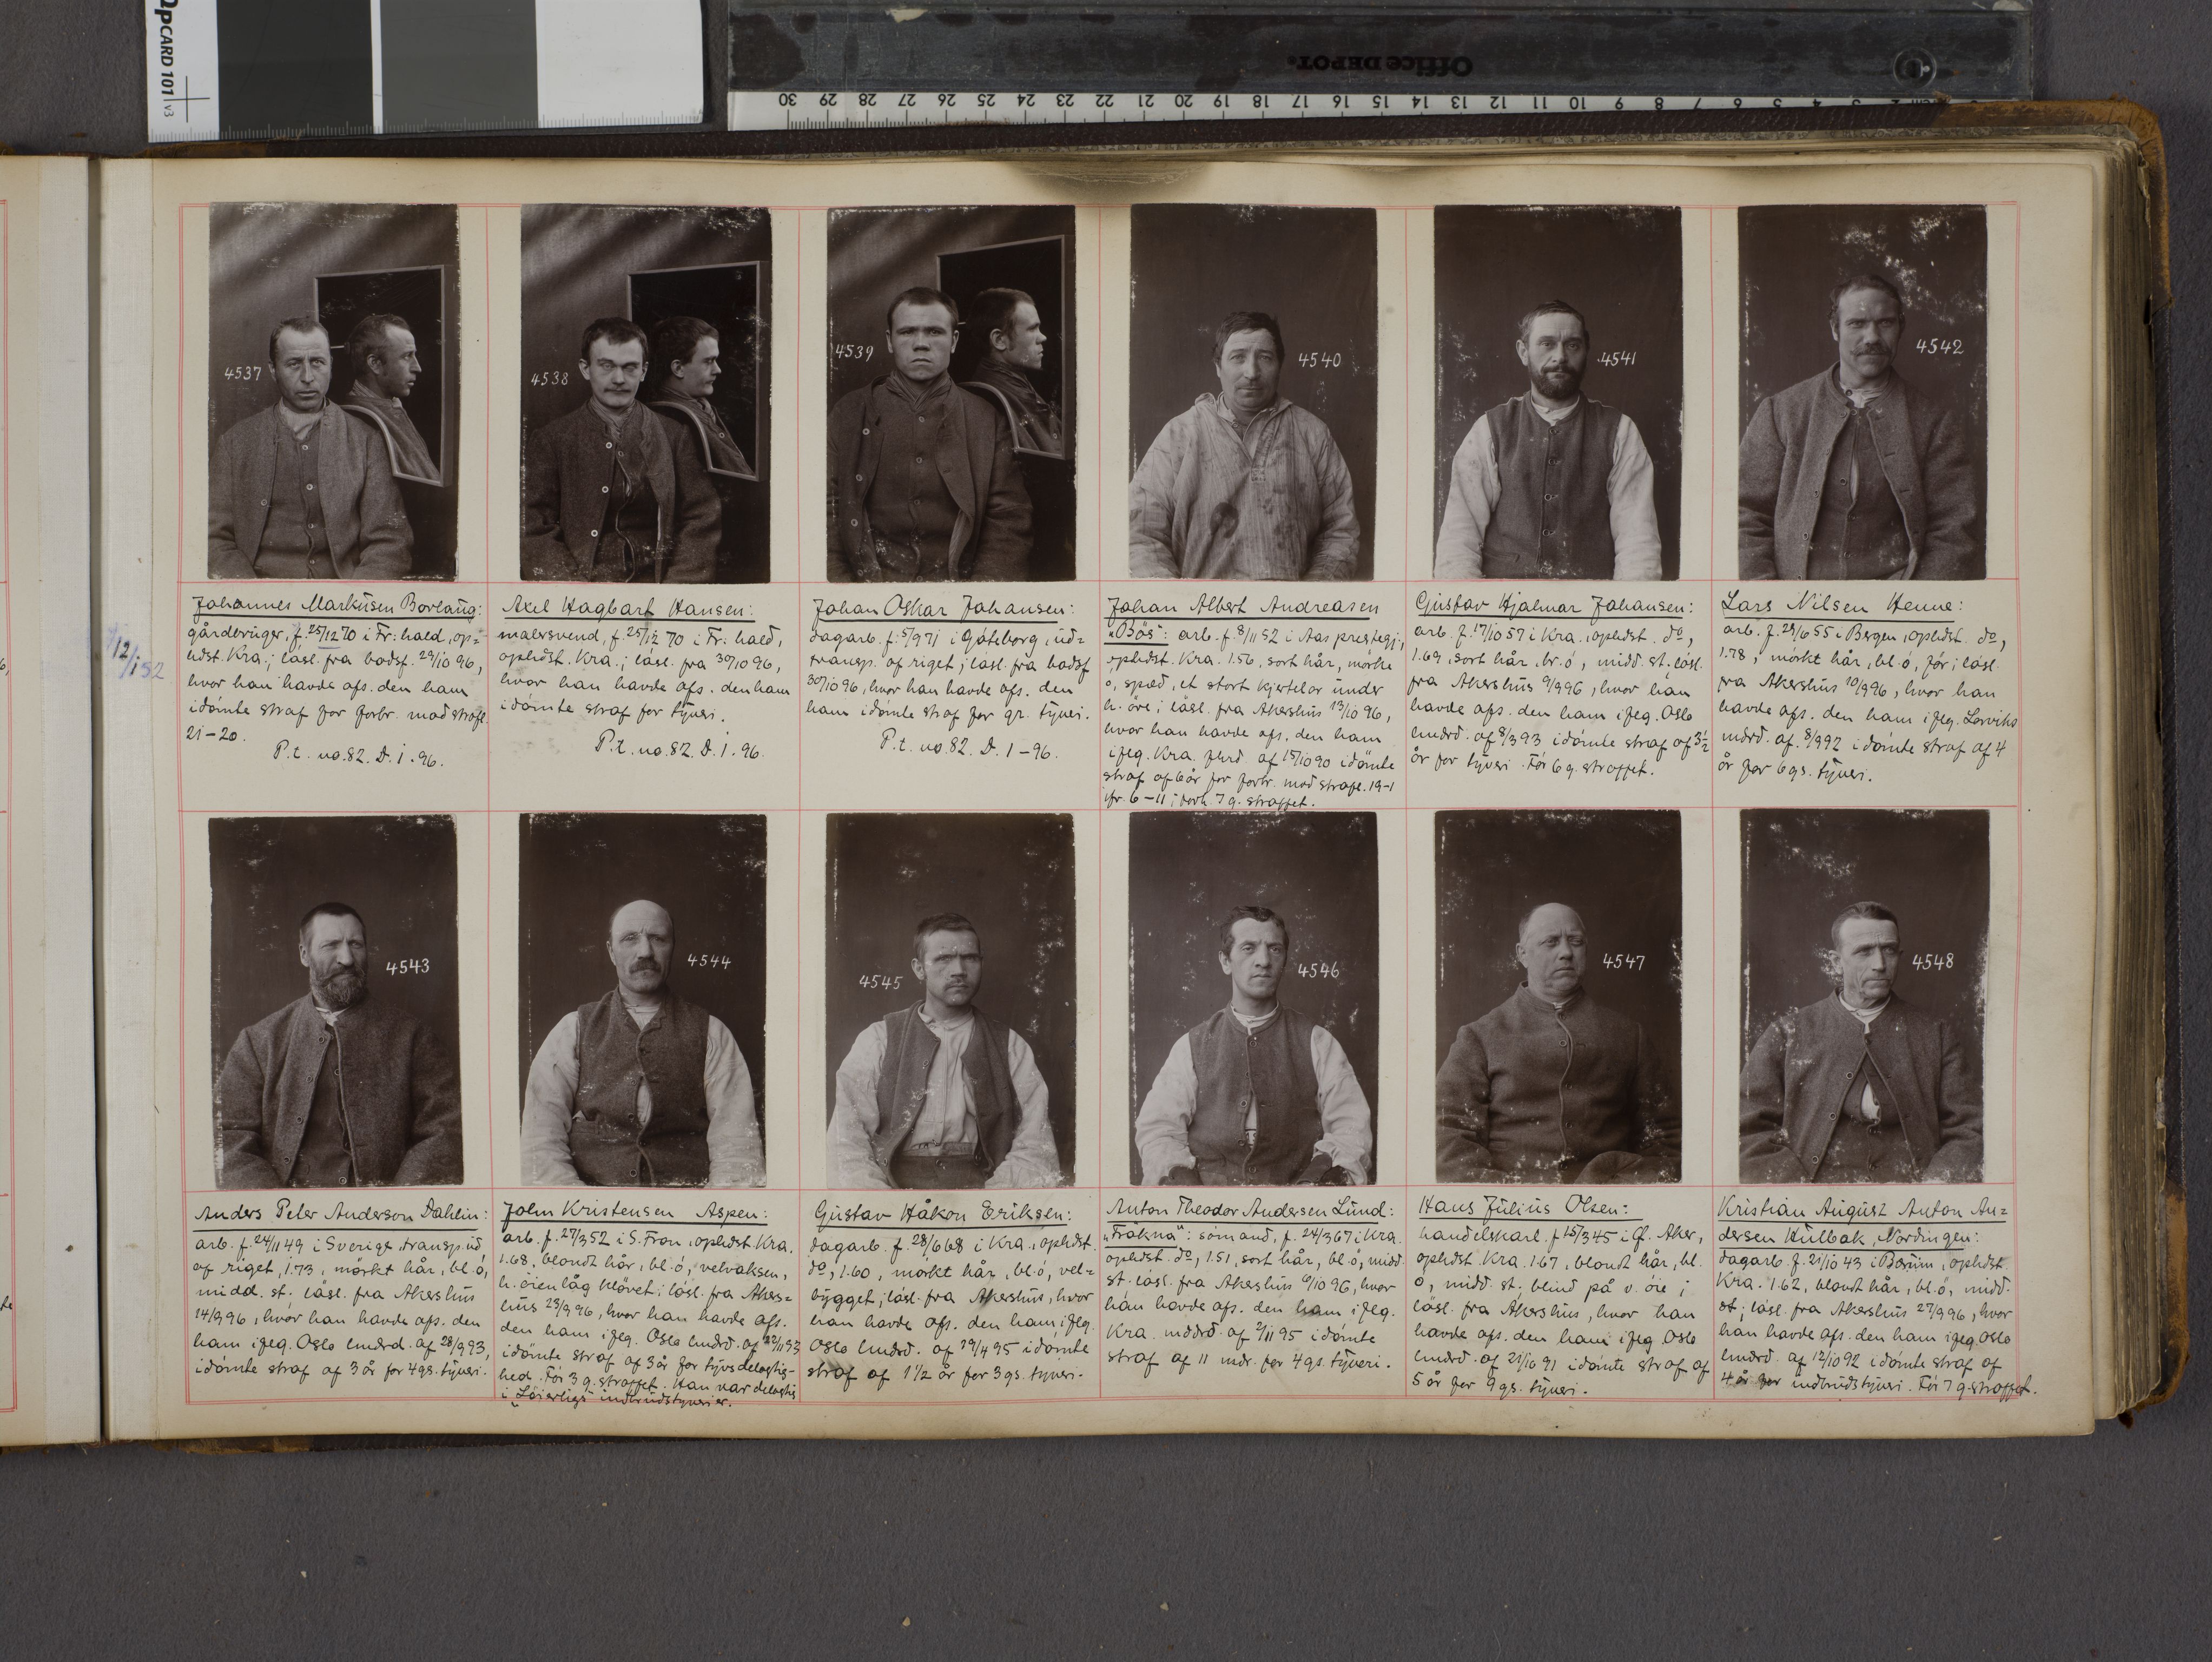 OpCARD 101 v3
Office DEPOT.
30 29 28 27 26 25 24 23 22 21 20 19 18 17 16 15 14 13 12 11 10 9 8 7 6 5 4 3 2
12/1 52
4537
4538
4539
4540
4541
4542
Johannes Markusen Borlaug:
gårdbruger, f. 25/12 70 i Fr:hald, op=
hdst. Kra.; løsl. fra bodsf. 29/10 96,
hvor han havde afs. den ham
idømte straf for forbr. mod strafl.
21-20.
P.t. no. 82. D. 1. 96.
Axel Hagbart Hansen:
malersvend, f. 25/12 70 i Fr:hald,
ophdst. Kra.; løsl. fra 30/10 96,
hvor han havde afs. den ham
idømte straf for tyveri.
P.t. no. 82. D. 1. 96.
Johan Oskar Johansen:
dagarb. f. 5/9 71 i Gøteborg, ud=
transp. af riget; løsl. fra bodsf
30/10 96, hvor han havde afs. den
ham idømte straf for gr. tyveri.
P.t. no. 82. D. 1-96.
Johan Albert Andreasen
"Bøs": arb. f. 8/11 52 i Aas prestegj.,
ophdst. Kra. 1.56, sort hår, mørke
ø, spæd, et stort kjertelar under
h. øre; løsl. fra Akershus 13/10 96,
hvor han havde afs. den ham
ifлg. Kra. af 15/10 90 idømte
straf af 6 år for forbr. mod strafl. 19-1
jfr. 6-11; 7 g. straffet.
Gustav Hjalmar Johansen:
arb. f. 17/10 57 i Kra., ophdst. do,
1.69, sort hår, br. ø, midd. st. løsl.
fra Akershus 9/9 96, hvor han
havde afs. den ham i flg. Oslo
lmdrd. af 8/3 93 idømte straf af 3 1/2
år for tyveri. Før 6 g. straffet.
Lars Nilsen Henne:
arb. f. 29/6 55 i Bergen, ophdst. do,
1.78, mørkt hår, bl. ø, før; løsl.
fra Akershus 10/9 96, hvor han
havde afs. den ham i flg. Larviks
mdrd. af 8/9 92 idømte straf af 4
år for 6 gs. tyveri.
4543
4544
4545
4546
4547
4548
Anders Peter Anderson Dahlin:
arb. f. 24/11 49 i Sverige, transp. ud
af riget, 1.73, mørkt hår, bl. ø,
midd. st. løsl. fra Akershus
14/9 96, hvor han havde afs. den
ham i flg. Oslo lmdrd. af 28/9 93,
idømte straf af 3 år for 4 gs. tyveri.
John Kristensen Aspen:
arb. f. 27/3 52 i S. Fron, ophdst. Kra.
1.68, blondt hår, bl. ø, velvaksen,
h. øienlåg kløvet; løsl. fra Akers=
hus 23/9 96, hvor han havde afs.
den ham i flg. Oslo lmdrd. af 22/11 93
idømte straf af 3 år for tyvsdelagtig-
hed. Før 3 g. straffet. Han var delagtig
i "Løierligs" indbrudstyverier.
Gustav Håkon Eriksen:
dagarb. f. 28/6 68 i Kra., ophdst.
do, 1.60, mørkt hår, bl. ø, vel=
bygget; løsl. fra Akershus, hvor
han havde afs. den ham i flg.
Oslo lmdrd. af 19/4 95 idømte
straf af 1 1/2 år for 3 gs. tyveri.
Anton Theodor Andersen Lund:
"Frøkna": sømand, f. 24/3 67 i Kra.
ophdst. do, 1.51, sort hår, bl. ø, midd.
st. løsl. fra Akershus 6/10 96, hvor
han havde afs. den ham i flg.
Kra. mddrd. af 2/11 95 idømte
straf af 11 mdr. for 4 gs. tyveri.
Hans Julius Olsen:
handelskarl. f. 15/3 45 i Ø. Aker,
ophdst. Kra. 1.67, blondt hår, bl.
ø, midd. st; blind på v. øie;
løsl. fra Akershus, hvor han
havde afs. den ham i flg. Oslo
lmdrd. af 21/10 91 idømte straf af
5 år for 9 gs. tyveri.
Kristian August Anton An=
dersen Hulbak, Nordingen:
dagarb. f. 21/10 43 i Bærum, ophdst.
Kra. 1.62, blondt hår, bl. ø, midd.
st; løsl. fra Akershus 27/9 96, hvor
han havde afs. den ham i flg. Oslo
lmdrd. af 12/10 92 idømte straf af
4 år for indbrudstyveri. Før 7 g. straffet.